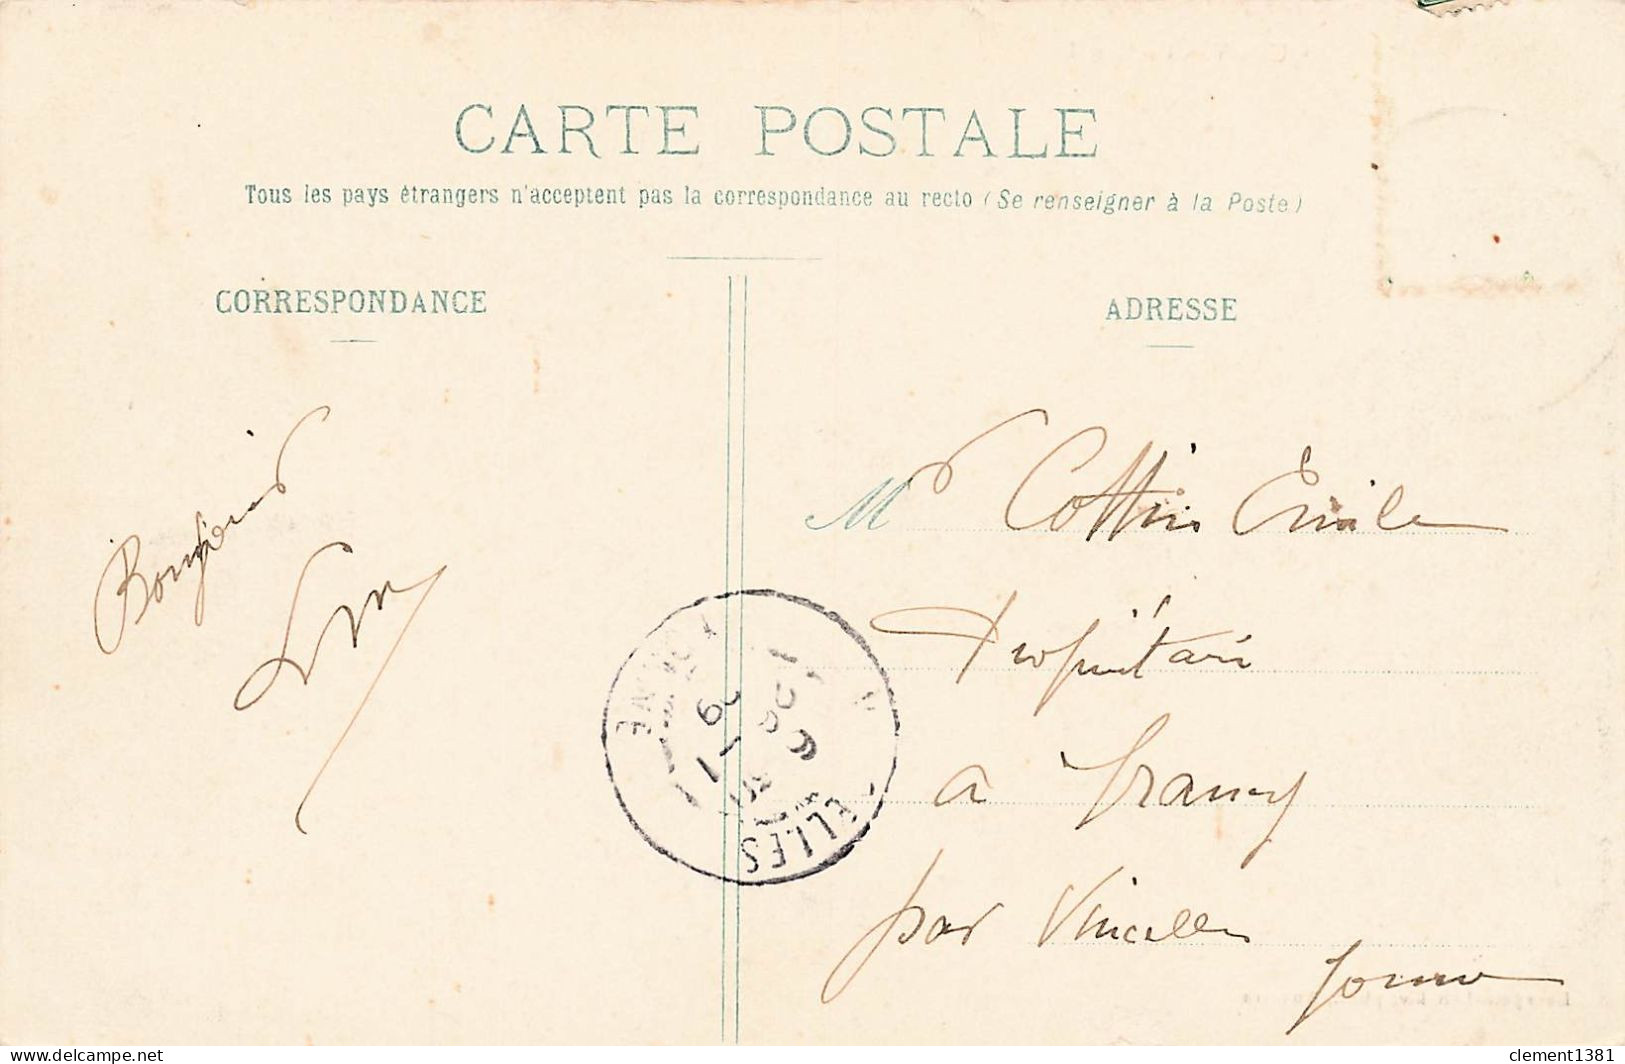 CARTE POSTALE
Tous les pays étrangers n'acceptent pas la correspondance au recto (Se renseigner à la Poste)
CORRESPONDANCE
ADRESSE
M
Cottin Emile
Propriétaire
a Irancy
par Vincelles
Yonne
YONNE
ELLES
clement1381